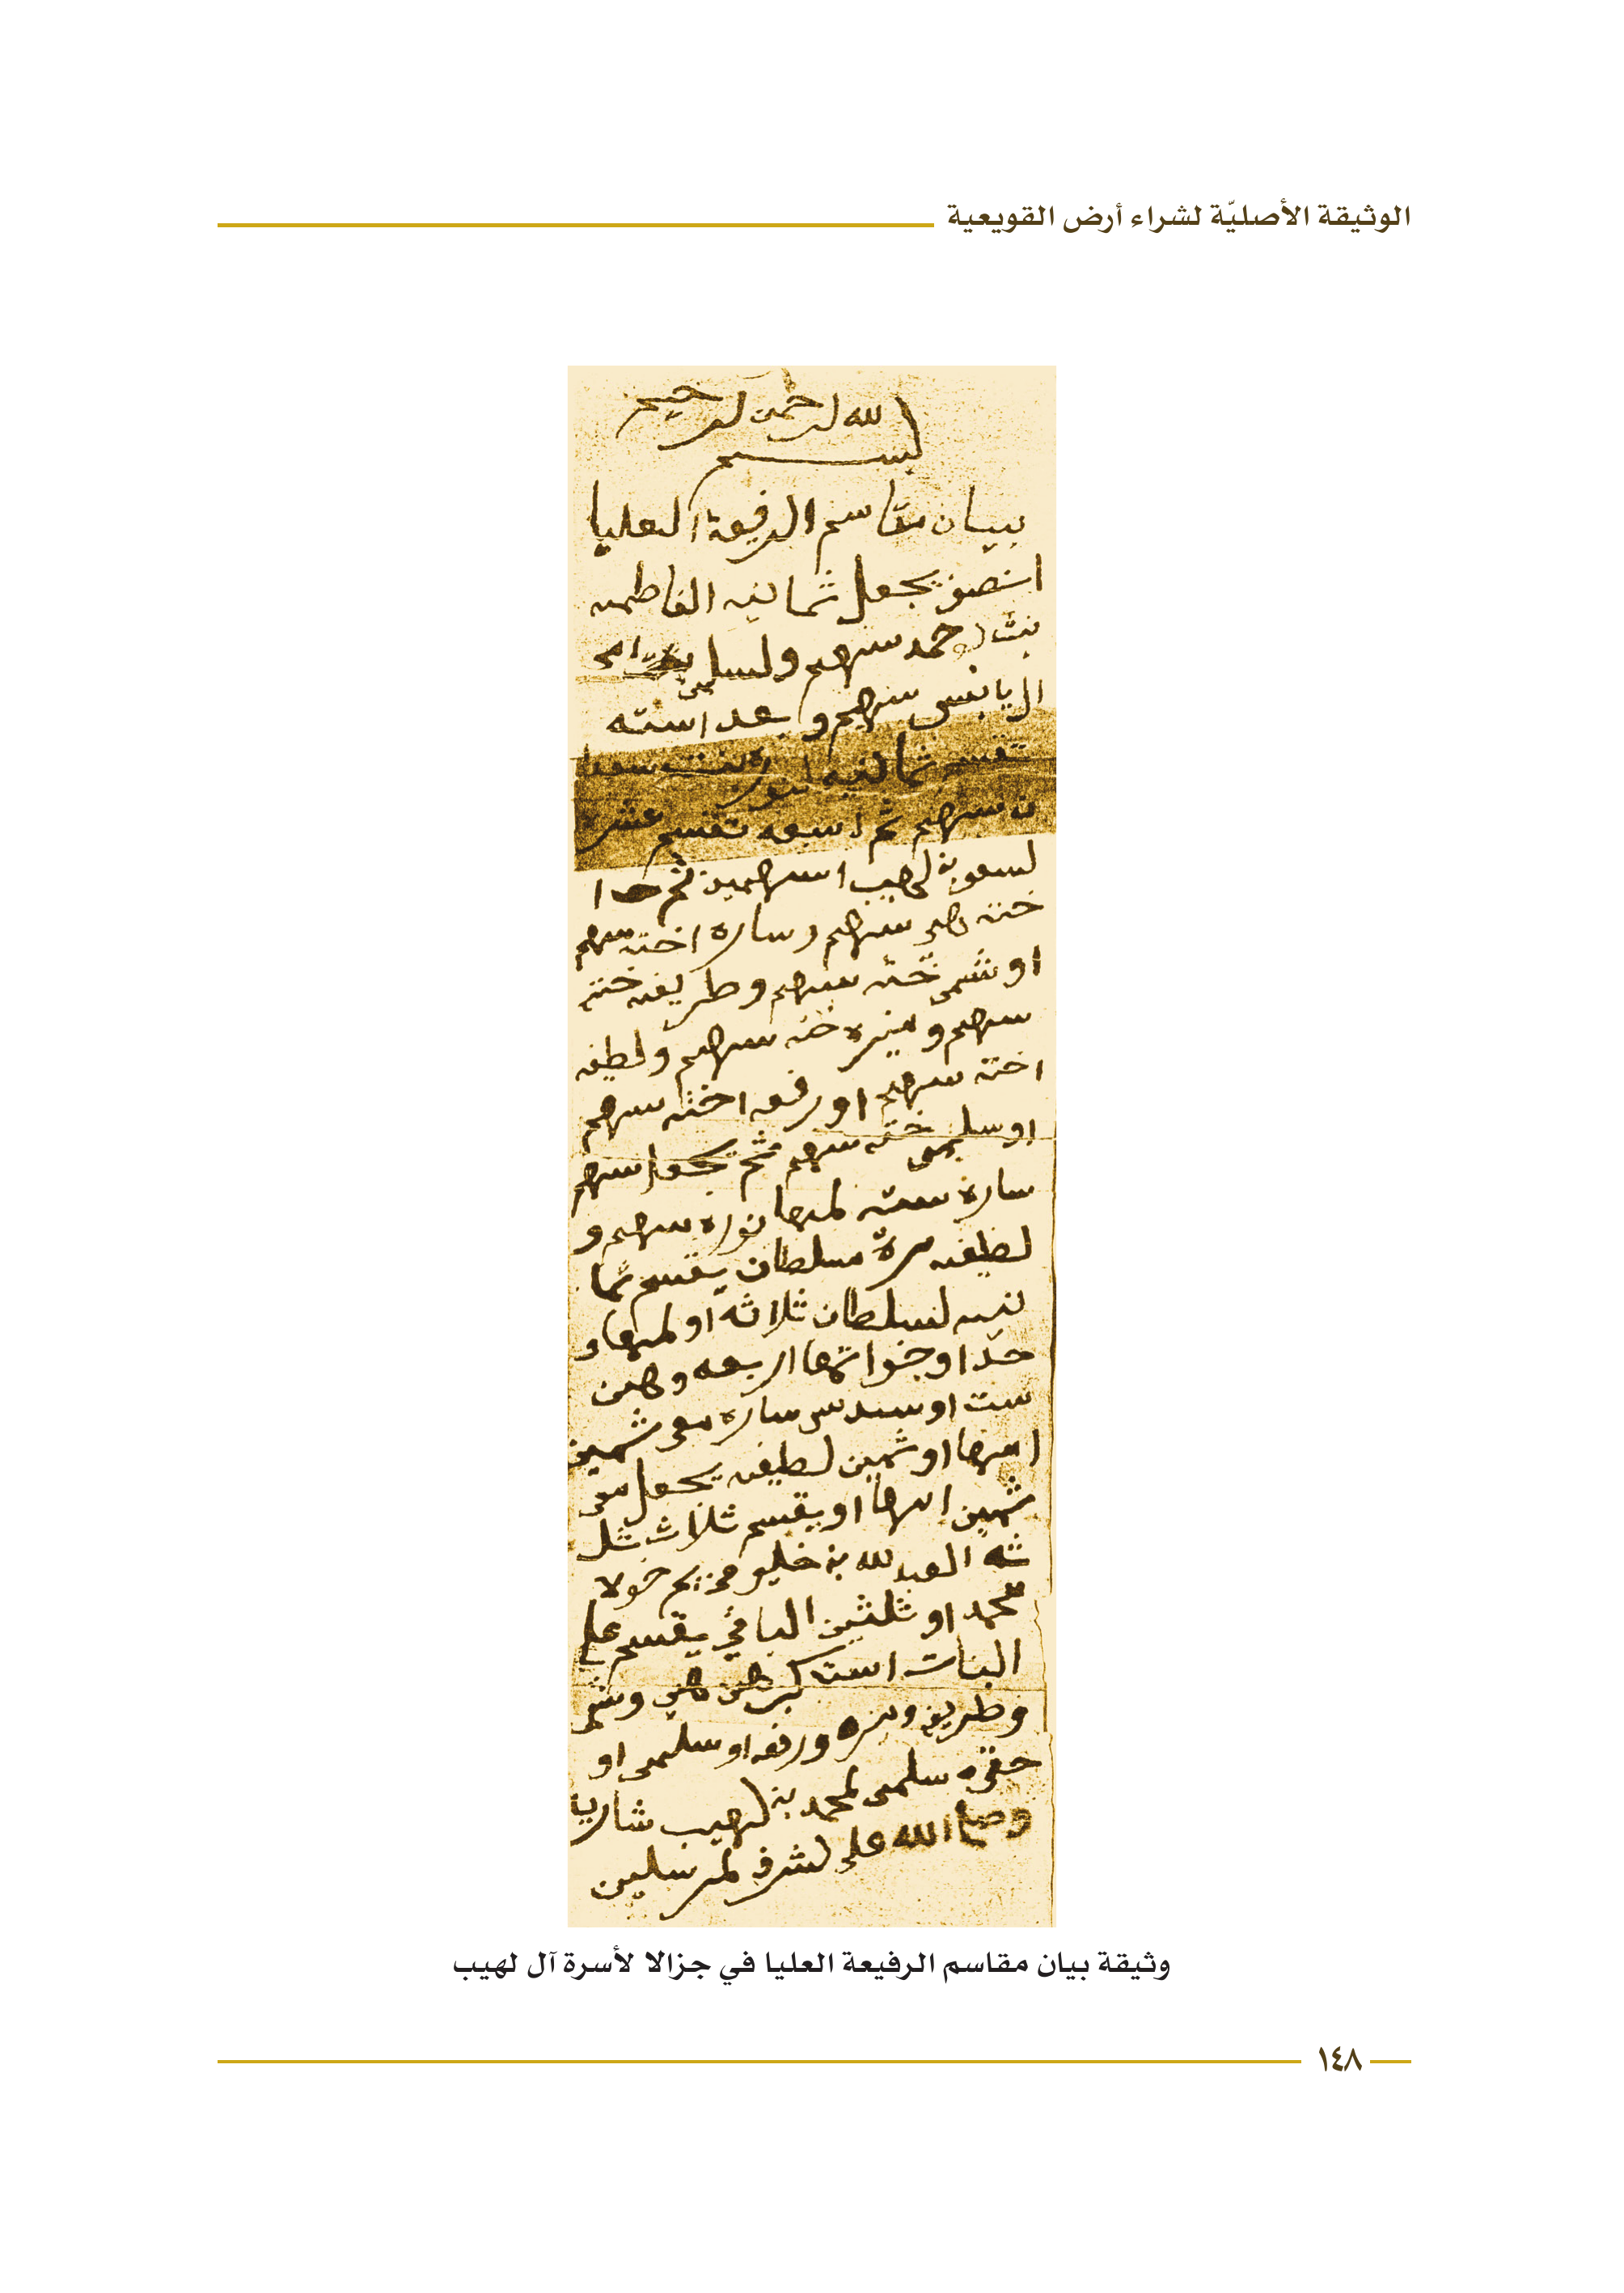 الوثيقة الأصليّة لشراء أرض القويعية
بسم الله الرحمن الرحيم
بيان مقاسم الرفيعة العليا
انصفن يجعل ثمانيه الفاطمه
بنت حمد سهم ولسلمى
سهم وبعد استه
تقسم ثمانيه النوره بنت سعدا
ن سهم ثم اسبعه تقسم عشره
لسعود بن لهيب اسهمين ثم
خته هي سهم وساره اخته سهم
او شمى خته سهم وطريفه خته
سهم ومنيره خته سهم ولطيفه
اخته سهم او رفعه اخته سهم
او سلمى خته سهم ثم يجعل اسهم
ساره سته لمها نوره سهم و
لطيفه مرة سلطان يقسم ثما
نيه لسلطان ثلاثه او لمها و
حدا وخواتها اربعه وهن
ست او سدس ساره مع ثمين
امها او ثمين لطيفه يجعل مع
ثمين امها او يقسم ثلاث ثل
ثه العبدلله بن
محمد او ثلثين الباقي يقسم على
البنات است كبرهن هي وشمى
وطريفه ومنيره ورفعه او سلمى او
حقة سلمى لمحمد بن لهيب شاريه
وصلى الله على اشرف المرسلين
وثيقة بيان مقاسم الرفيعة العليا في جزالا لأسرة آل لهيب
١٤٨